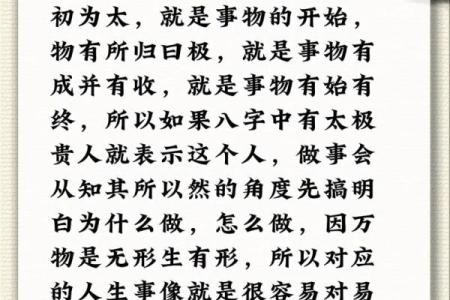 初为太，就是事物的开始，
物有所归曰极，就是事物有
成并有收，就是事物有始有
终，所以如果八字中有太极
贵人就表示这个人，做事会
从知其所以然的角度先搞明
白为什么做，怎么做，因万
物是无形生有形，所以对应
的人生事像就是很容易对易